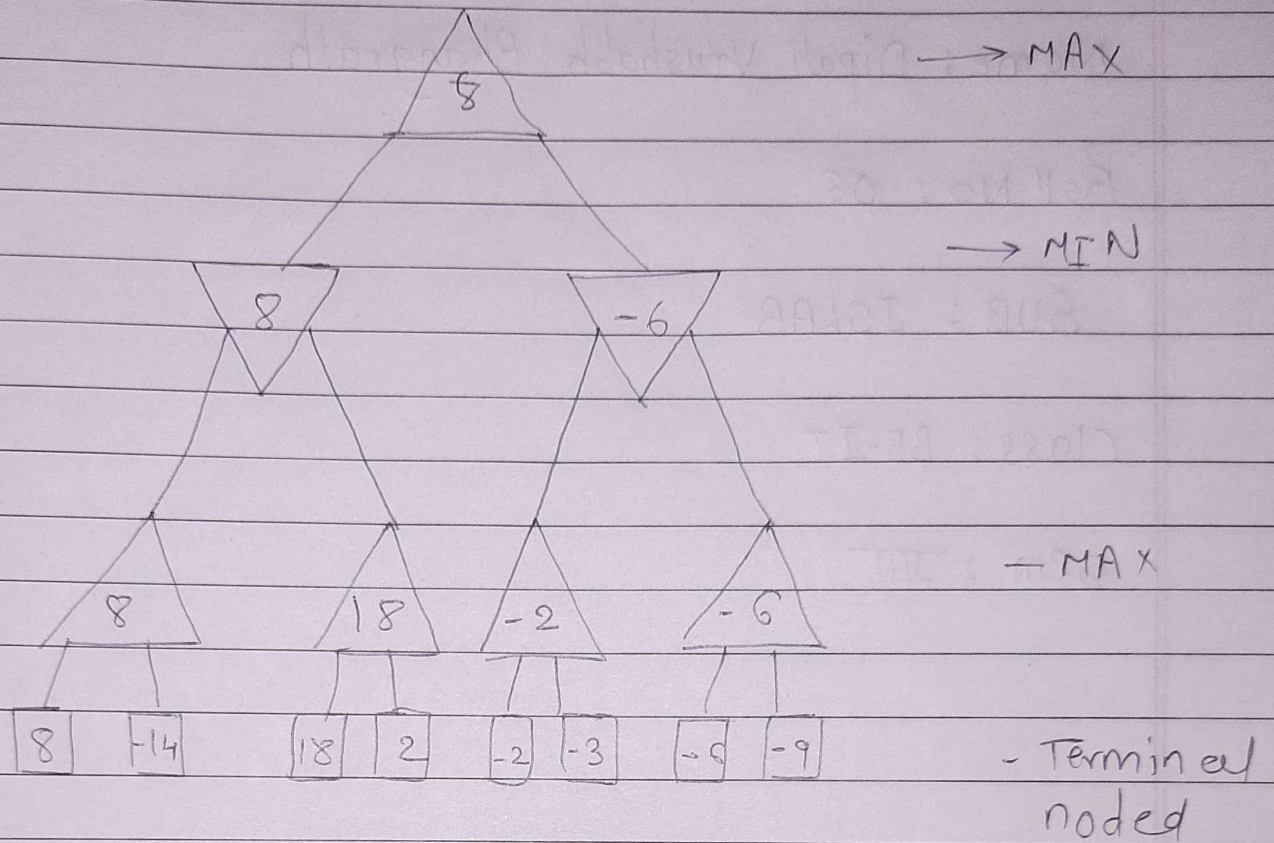 → MAX
8
→ MIN
8 -6
- MAX
8 18 -2 -6
8 -14 18 2 -2 -3 -9
- Terminal
noded